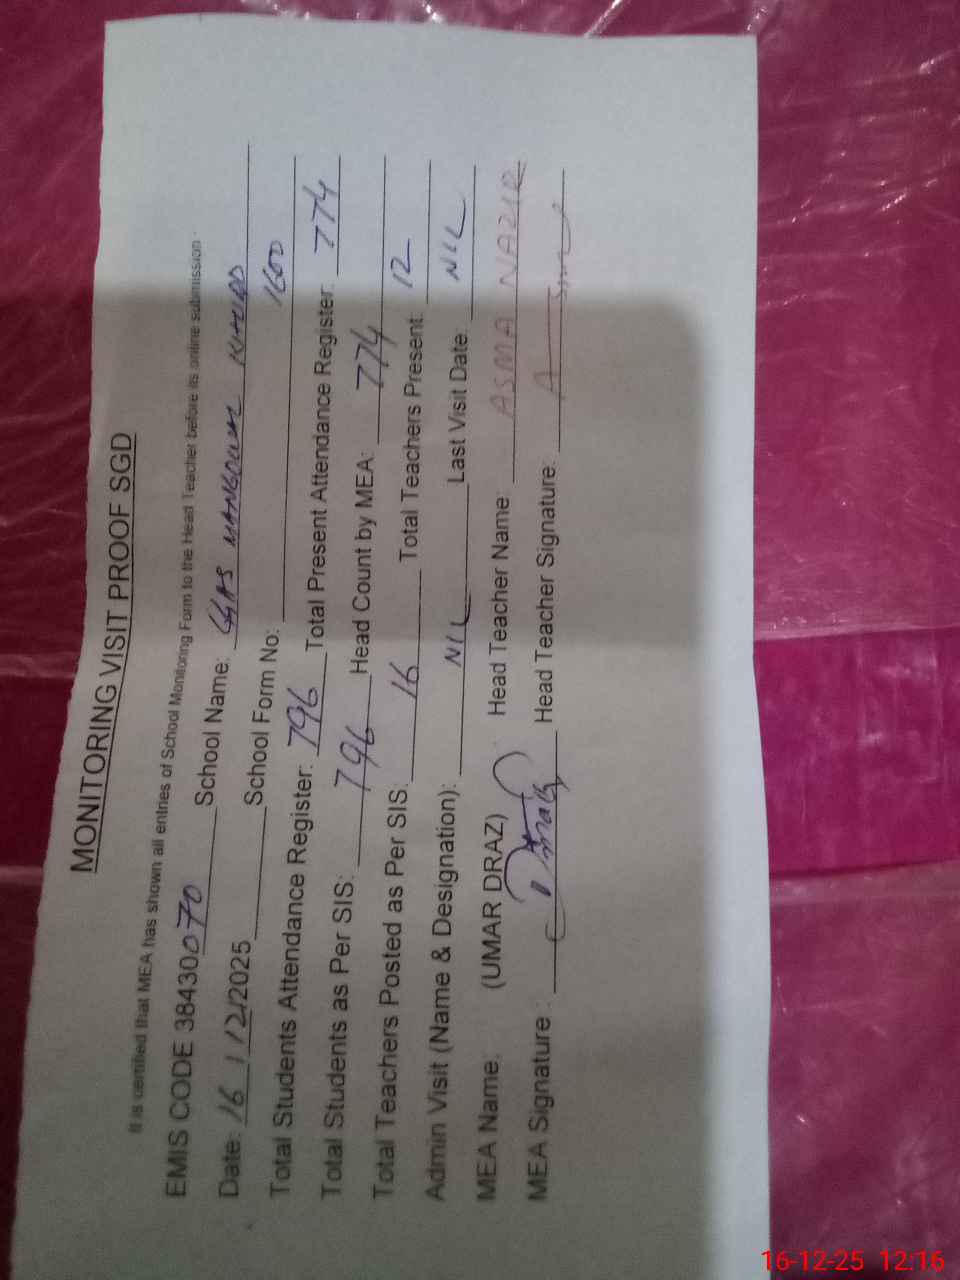 MONITORING VISIT PROOF SGD
It is certified that MEA has shown all entries of School Monitoring Form to the Head Teacher before its online submission
EMIS CODE 38430070 School Name: GGHS MANGOWAL KHURD
Date: 16 / 12/2025 School Form No: 1600
Total Students Attendance Register: 796 Total Present Attendance Register: 774
Total Students as Per SIS: 796 Head Count by MEA: 774
Total Teachers Posted as Per SIS: 16 Total Teachers Present: 12
Admin Visit (Name & Designation): NIL Last Visit Date: NIL
MEA Name: (UMAR DRAZ) Head Teacher Name: ASMA NAZIR
MEA Signature: Head Teacher Signature:
16-12-25 12:16